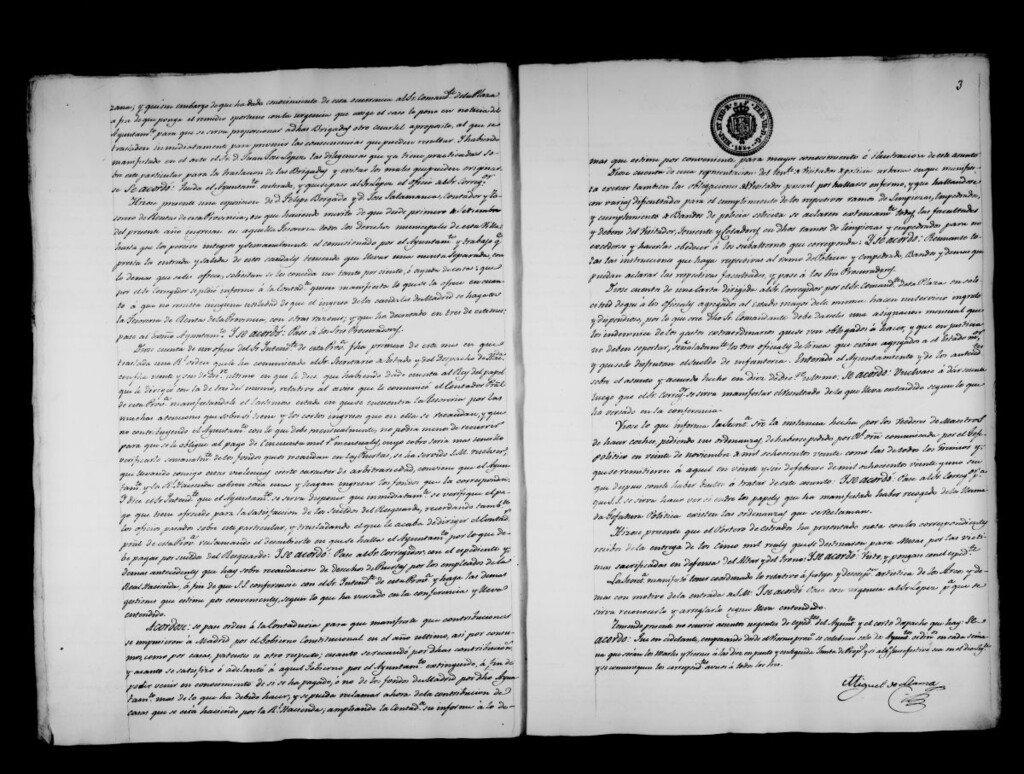 zana; y quien embargo de que ha dado conocimiento de esta ocurrencia al Sr. Comand.te de la Plaza
a fin de que ponga el remedio oportuno con la urgencia que exige el caso lo pone en noticia del
Ayuntam.to para que se sirva proporcionar a dichas Brigadas otro cuartel aproposito, al que se
trasladen inmediatamente para prevenir las consecuencias que pueden resultar. I habiendo
manifestado en el acto el Sr. D. Juan José Lopez las diligencias que ya tiene practicadas so-
bre este particular para la traslacion de las Brigadas y evitar los males que pudieran originar-
se Se acordó: Queda el Ayuntam.to enterado, y que pase al Sr. Lopez el oficio del Sr. Correg.or
Hizose presente una esposicion de D. Felipe Bergado y D. José Salamanca, contador y te-
sorero de Rentas de esta Provincia, en que haciendo merito de que desde primero de Setiembre
del presente año ingresan en aquella Tesoreria todos los derechos municipales de esta Villa
hasta que los percive integros y semanalmente el comisionado por el Ayuntam.to y trabajo q.e
presta la entrada y salida de estos caudales teniendo que llevar una cuenta separada, con
lo demas que sobre ofrece, solicitan se les conceda un tanto por ciento, o ayuda de costas: que
por el Sr. Corregidor se pidió informe a la Contad.a quien manifiesta lo que se la ofrece en cuan-
to á que no resulta ninguna utilidad de que el ingreso de los caudales de Madrid se haga en
la Tesoreria de Rentas de la Provincia, con otras razones; y que ha decretado en tres de este mes
pase al Exmo. Ayuntam.to I se acordó: Pase á los Sres. Procuradores.
Diose cuenta de un oficio del Sr. Intend.te de esta Prov.a su fha. primero de este mes en que
traslada una R.l orden que le ha comunicado el Sr. Secretario de Estado y del Despacho de Hda.
en que le dice que habiendo dado cuenta al Rey del papel
que le dirigió con la de tres del mismo, relativo al oficio que le comunicó el Contador Pral.
de esta Prov.a manifestandole el lastimoso estado en que se encuentra la Tesoreria por las
muchas atenciones que sobre sí tiene y los cortos ingresos que en ella se recaudan, y que
no contribuyendo el Ayuntam.to con lo que debe mensualmente, no podia menos de recurrir
para que se le obligue al pago de cincuenta mil r.s mensuales, cuyo cobro seria mas sencillo
verificarlo semanalmente de los fondos que se recaudan en las Puertas, se ha servido S.M. resolver,
que llevando consigo estas violencias cierto caracter de arbitrariedad, conviene que el Ayun-
tam.to y la R.l Hacienda cobren cada una y hagan ingresar los fondos que la correspondan:
I dice el Sr. Intend.te que el Ayuntam.to se sirva disponer que inmediatam.te se verifique el pa-
go que tiene ofrecido para la satisfaccion de los Sueldos del Resguardo, recordando tamb.n
los oficios pasados sobre este particular, y trasladando el que le acaba de dirigir el Contad.or
pral. de esta Prov.a reclamando el descubierto en que se halla el Ayuntam.to por lo que de-
be pagar por sueldos del Resguardo. I se acordó: Pase al Sr. Corregidor, con el expediente y
demas antecedentes que hay sobre recaudacion de derechos de Puertas por los empleados de la
Real Hacienda, á fin de que S.S. conferencie con el Sr. Intend.te de esta Prov.a y haga las demas
gestiones que estime por convenientes, segun lo que ha versado en la conferencia y lleva
entendido.
Acordose: se pase orden á la Contaduria para que manifieste que contribuciones
se impusieron á Madrid por el Gobierno Constitucional en el año ultimo, asi por consu-
mos como por casas, patentes u otro respeto; cuanto se recaudó por dhas. contribuciones,
y cuanto se satisfizo ó adelantó á aquel Gobierno por el Ayuntam.to extinguido, á fin de
poder venir en conocimiento de si se ha pagado, ó no de los fondos de Madrid por dho. Ayun-
tam.to mas de lo que ha debido hacer, y se pueda reclamar ahora de la contribucion de
casas que se está haciendo por la R.l Hacienda; ampliando la Contad.a su informe á lo de-
3
mas que estime por conveniente para mayor conocimiento é ilustracion de este asunto.
Diose cuenta de una representacion del en que manifies-
ta evacuar tambien las obligaciones de Visitador general por hallarse enfermo, y que hallandose
con varias dificultades para el cumplimiento de los respectivos ramos de Limpiezas, Empedrados,
y cumplimiento de Bandos de policia solicita se aclaren extensam.te todas las facultades
y deberes del Visitador, Teniente y Celadores en dhos. ramos de limpiezas y empedrados para en-
tenderlos y hacerlas obedecer á los subalternos que corresponda: I se acordó: Reunanse to-
das las instrucciones que haya respectivas al ramo de Policia y empedrado, Bandos y demas que
puedan aclarar las respectivas facultades, y pase á los Sres. Procuradores.
Diose cuenta de una carta dirigida al Sr. Corregidor por el Sr. Comand.te de la Plaza en soli-
citud de que á los oficiales agregados al estado mayor de la misma hacen un servicio ingrato
y dispendioso, por lo que cree dho. Sr. Comandante debe darseles una asignacion mensual que
los indemnice de los gastos extraordinarios que se ven obligados á hacer, y que en justicia
no deben soportar, señaladam.te los tres oficiales de linea que están agregados al Estado m.or
y que solo disfrutan el sueldo de infanteria. Enterado el Ayuntamiento y de los anteced.tes
sobre el asunto y acuerdo hecho en diez de dic.e ultimo, Se acordó: Vuelvase á dar cuenta
luego que el Sr. Correg.or se sirva manifestar el resultado de lo que lleva entendido segun lo que
ha versado en la conferencia.
Viose lo que informa la Secret.a sre. la instancia hecha por los Veedores de Maestros
de hacer coches, pidiendo sus ordenanzas, de haberse pedido por R.l orn. comunicada por el Gefe
politico en veinte de noviembre de mil ochocientos veinte como las de todos los Gremios; y
que se remitieron á aquel en veinte y seis de febrero de mil ochocientos veinte y uno sin
que despues conste haber vuelto á tratar de este asunto: I se acordó: Pase al Sr. Correg.or p.a
que S.S. se sirva hacer ver si entre los papeles que ha manifestado haber recogido de la llama-
da Gefatura Politica existen las ordenanzas que se reclaman.
Hizose presente que el Portero de estrados ha presentado nota con los correspondientes
recibos de la entrega de los cinco mil reales que se destinaron para Misas por las victi-
mas sacrificadas en defensa del Altar y del Trono: I se acordó: Visto, y pongase con el exped.te
La Secret.a manifestó tener coordinado lo relativo á festejos y descripc.n artistica de los Arcos y de-
mas con motivo de la entrada de S.M: I se acordó: Pase con urgencia al Sr. Lopez p.a que se
sirva reconocerlo y arreglarlo segun lleva entendido.
Teniendo presente no ocurrir asuntos urgentes de exped.tes del Ayunt.to y el corto despacho que hay: Se
acordó: Que en adelante, empezando desde el viernes prox.mo se celebren solo dos Ayuntam.tos ordin.os en cada sema-
na que serán los Martes y Viernes á las diez en punto y enseguida Junta de Prop.s
y se comuniquen los correspond.tes avisos á todos los Sres.
Miguel de Llama